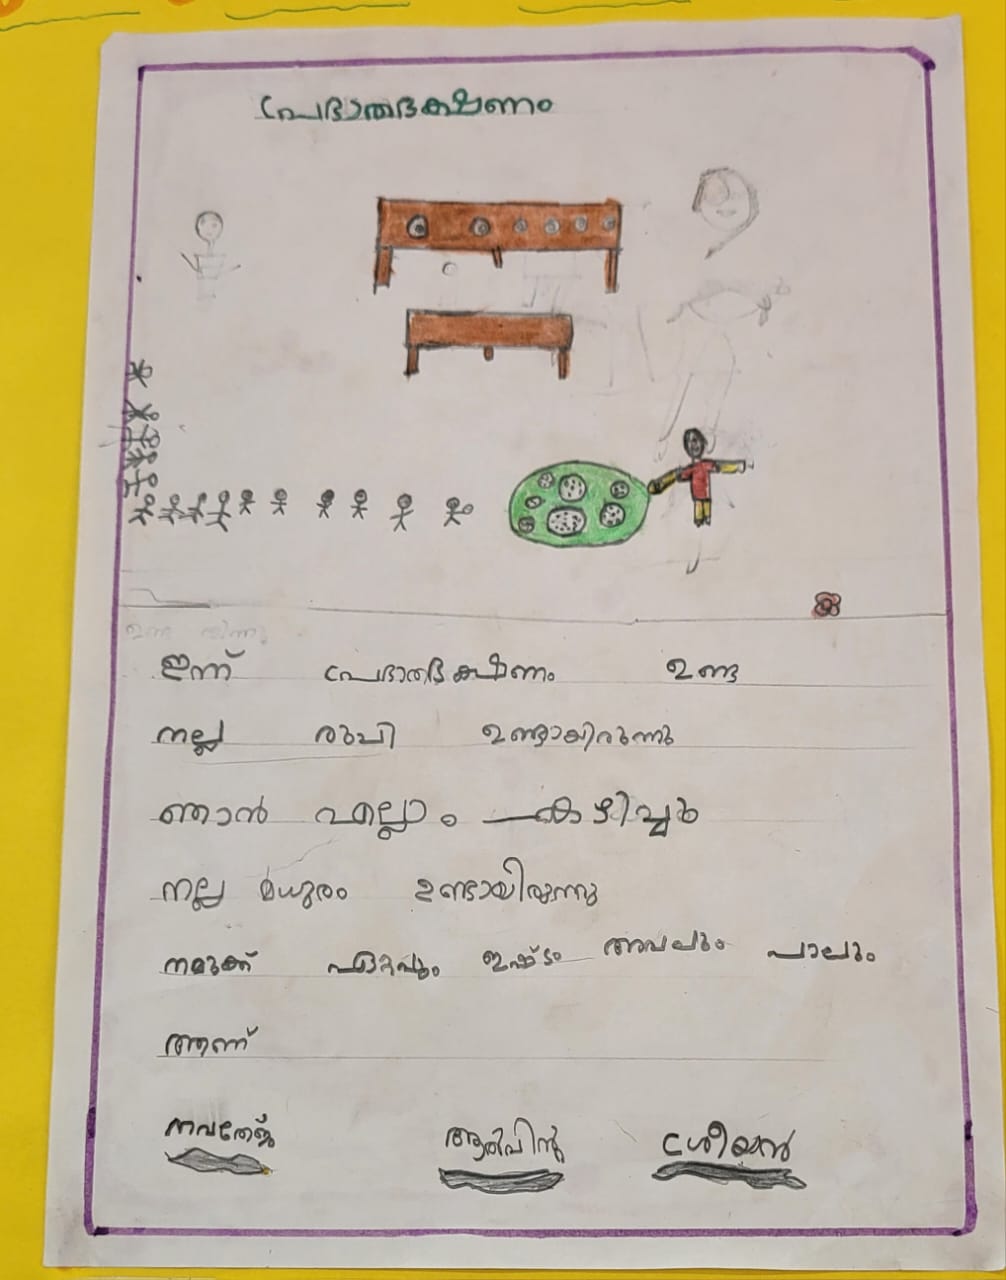 പ്രഭാതഭക്ഷണം
ഇന്ന് പ്രഭാതഭക്ഷണം ഉണ്ട
നല്ല രുചി ഉണ്ടായിരുന്നു
ഞാൻ എല്ലാം കഴിച്ചു
നല്ല മധുരം ഉണ്ടായിരുന്നു
നമുക്ക് ഏറ്റവും ഇഷ്ടം അവലും പാലും
ആണ്
നവതേജ് ആൽവിൻ ശ്രീയാൻ